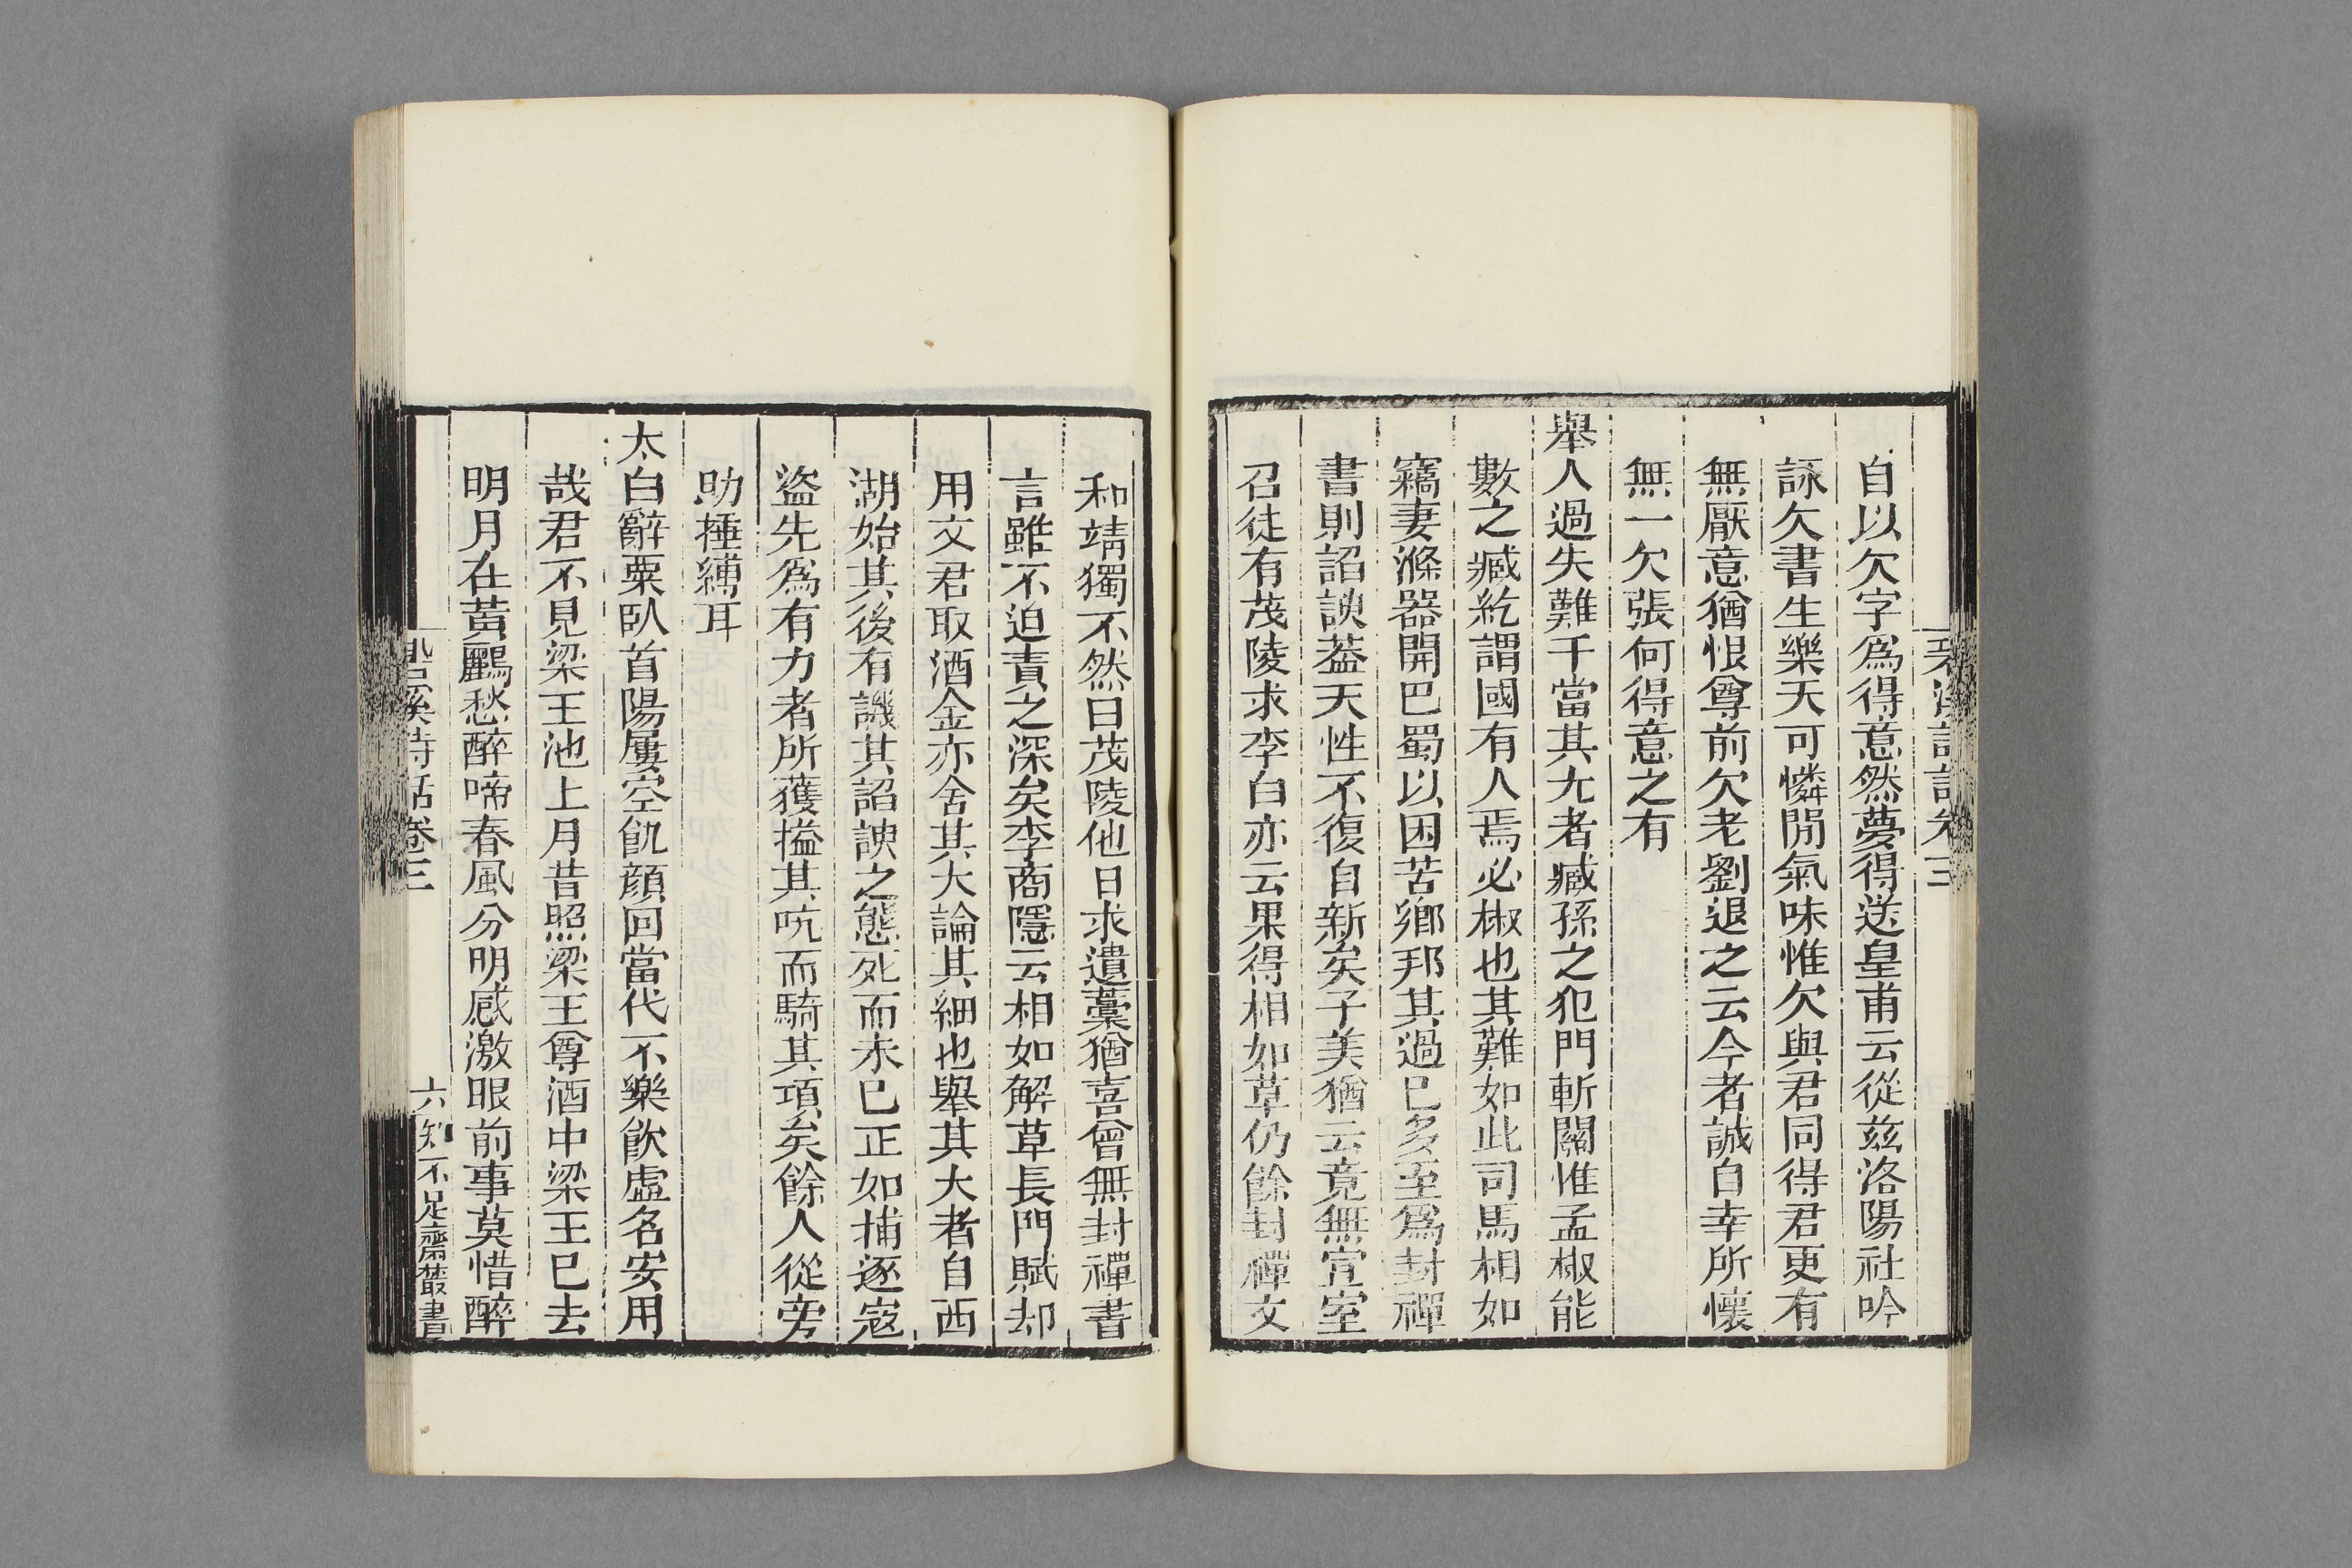 自以欠字爲得意然夢得送皇甫云從兹洛陽社吟
詠欠書生樂天可憐閒氣味惟欠與君同得君更有
無厭意猶恨尊前欠老劉退之云今者誠自幸所懷
無一欠張何得意之有
舉人過失難于當其尤者臧孫之犯門斬關惟孟椒能
數之臧紇謂國有人焉必椒也其難如此司馬相如
竊妻滌器開巴蜀以困苦鄉邦其過已多至爲封禪
書則諂諛葢天性不復自新矣子美猶云竟無宣室
召徒有茂陵求李白亦云果得相如草仍餘封禪文
和靖獨不然曰茂陵他日求遺藁猶喜曾無封禪書
言雖不迫責之深矣李商隱云相如解草長門賦却
用文君取酒金亦舍其大論其細也舉其大者自西
湖始其後有譏其諂諛之態死而未已正如捕逐寇
盜先爲有力者所獲搤其吭而騎其項矣餘人從旁
助捶縛耳
太白辭粟臥首陽屢空飢顔回當代不樂飲虛名安用
哉君不見梁王池上月昔照梁王尊酒中梁王已去
明月在黃鸝愁醉啼春風分明感激眼前事莫惜醉
溪詩話卷三 六 知不足齋叢書